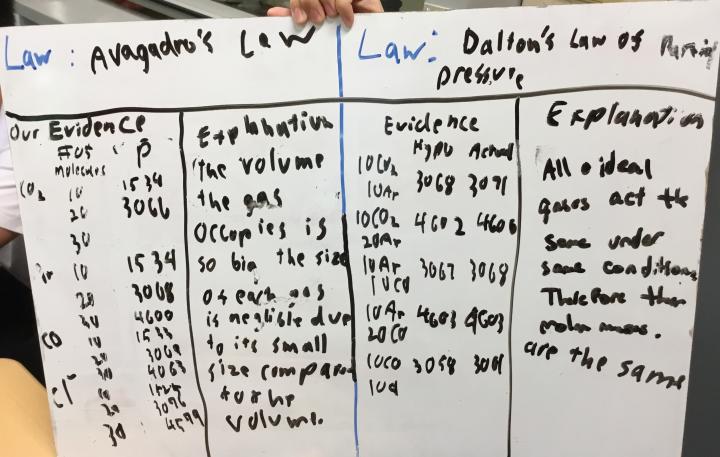 Law : Avagadro's Law
Our Evidence
# of Molecules P
CO2 10 1534
20 3066
30
Ar 10 1534
20 3068
30 4600
CO 10 1533
20
30
Cl
20
30 4599
Explanation
the volume
the gas
occopies is
so big the size
of each gas
is neglible due
to its small
size compared
to the
volume.
Law: Dalton's Law of Partial
pressure
Evidence
Hypo Actual
10CO2 3068 3071
10Ar
10CO2 4602 4600
20Ar
10Ar 3067 3068
10CO
10Ar 4603 4603
20CO
10CO 3058
10Cl
Explanation
All ideal
gases act the
same under
same conditions
Therefore their
molar masses.
are the same